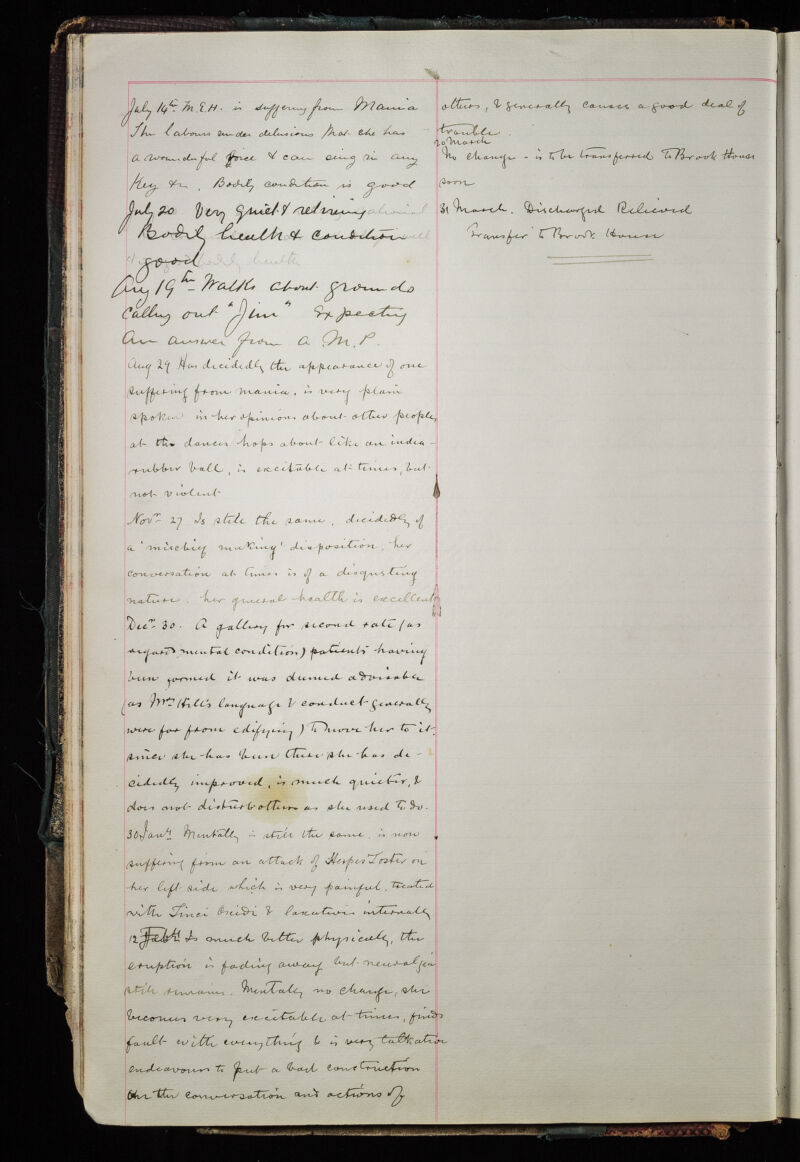 July 14th M.E.H. is suffering from Mania
She labours under delusions that she has
a wonderful voice & can sing in any
Key &c. Bodily condition is good
July 20 Very quiet & retiring
Bodily health & condition
good
Aug 19th Walks about grounds
calling out "Jim" Expecting
an answer from a M.P.
Aug 29 Has decidedly the appearance of one
suffering from mania, is very plain
spoken in her opinions about other people,
at the dances hops about like an india-
rubber ball, is excitable at times, but
not violent
Novr 27 Is still the same, decidedly of
a 'mischief making' disposition, her
conversation at times is of a disgusting
nature. her general health is excellent
Decr 30. A gallery for second rate (as
regards mental condition) patients having
been formed it was deemed advisable
(as Mrs Hill's language & conduct generally
were far from edifying) to move her to it.
since she has been there she has de-
cidedly improved, is much quieter, &
does not disturb others as she used to do.
30 Jany Mentally is still the same, is now
suffering from an attack of Herpes Zoster on
her left side which is very painful, treated
with Zinci Oxidi & laxatives internally
12 Feby Is much better physically, the
eruption is fading away but neuralgia
still remains. Mentally no change, she
becomes very excitable at times, finds
fault with everything & is very talkative
endeavours to put a bad construction
on the conversation and actions of
others, & generally causes a good deal of
trouble.
20 March
No change - is to be transferred to Brook House
soon
31 March. Discharged Relieved
Transfer to Brook House